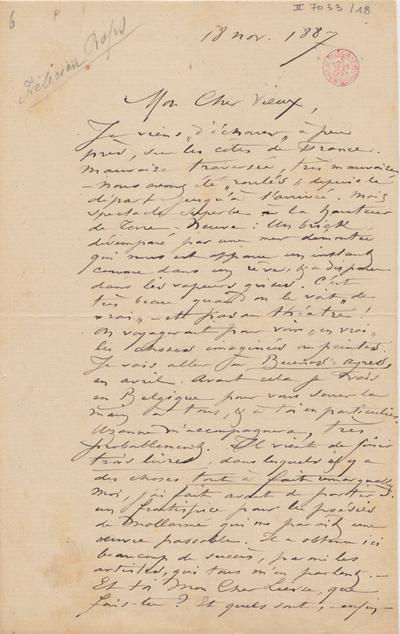 6
II 7033/18
Félicien Rops
18 nov. 1887
Mon Cher Vieux,
Je viens "d'échouer" à peu
près, sur les côtes de France.
Mauvaise traversée, très mauvaise
- Nous avons été "roulés" depuis le
départ jusqu'à l'arrivée. Mais
spectacle superbe à la hauteur
de Terre Neuve: Un brick
désemparé par une mer démontée
qui nous est apparu un instant
comme dans un rêve, & a disparu
dans les vapeurs grises. C'est
très beau quand on le voit "de
vrai" et pas au théâtre!
On voyagerait pour voir "en vrai"
les choses imaginées ou peintes.
Je vais aller à Buenos-Ayres
en avril. Avant cela je vais
en Belgique pour vous serrer la
main à tous, & à toi en particulier.
Uzanne m'accompagnera, très
probablement. Il vient de finir
trois livres, dans lesquels il y a
des choses tout à fait remarquables.
Moi, j'ai fait avant de partir
un frontispice pour les poésies
de Mallarmé qui me paraît une
œuvre passable. Il a obtenu ici
beaucoup de succès, parmi les
artistes, qui tous m'en parlent. -
Et toi Mon Cher que
fais-tu? Et quels sont, - enfin -